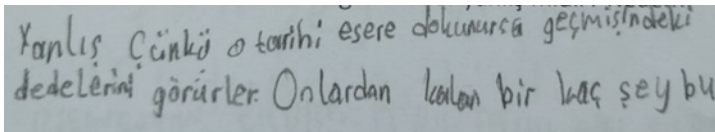 Yanlış Çünkü o tarihi esere dokunursa geçmişindeki
dedelerini görürler. Onlardan kalan bir kaç şey bu